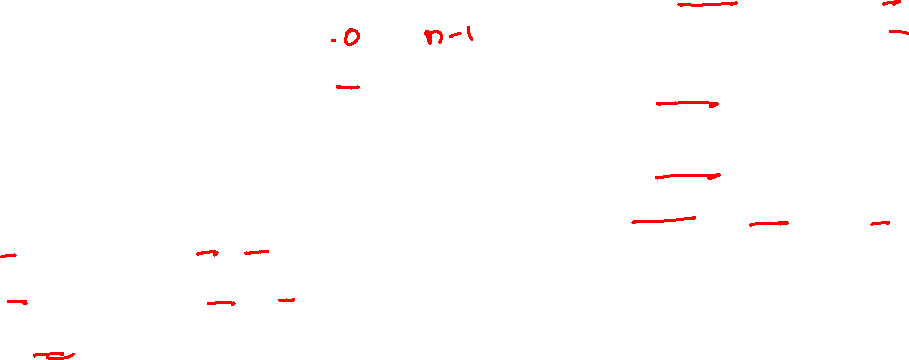 0 n-1